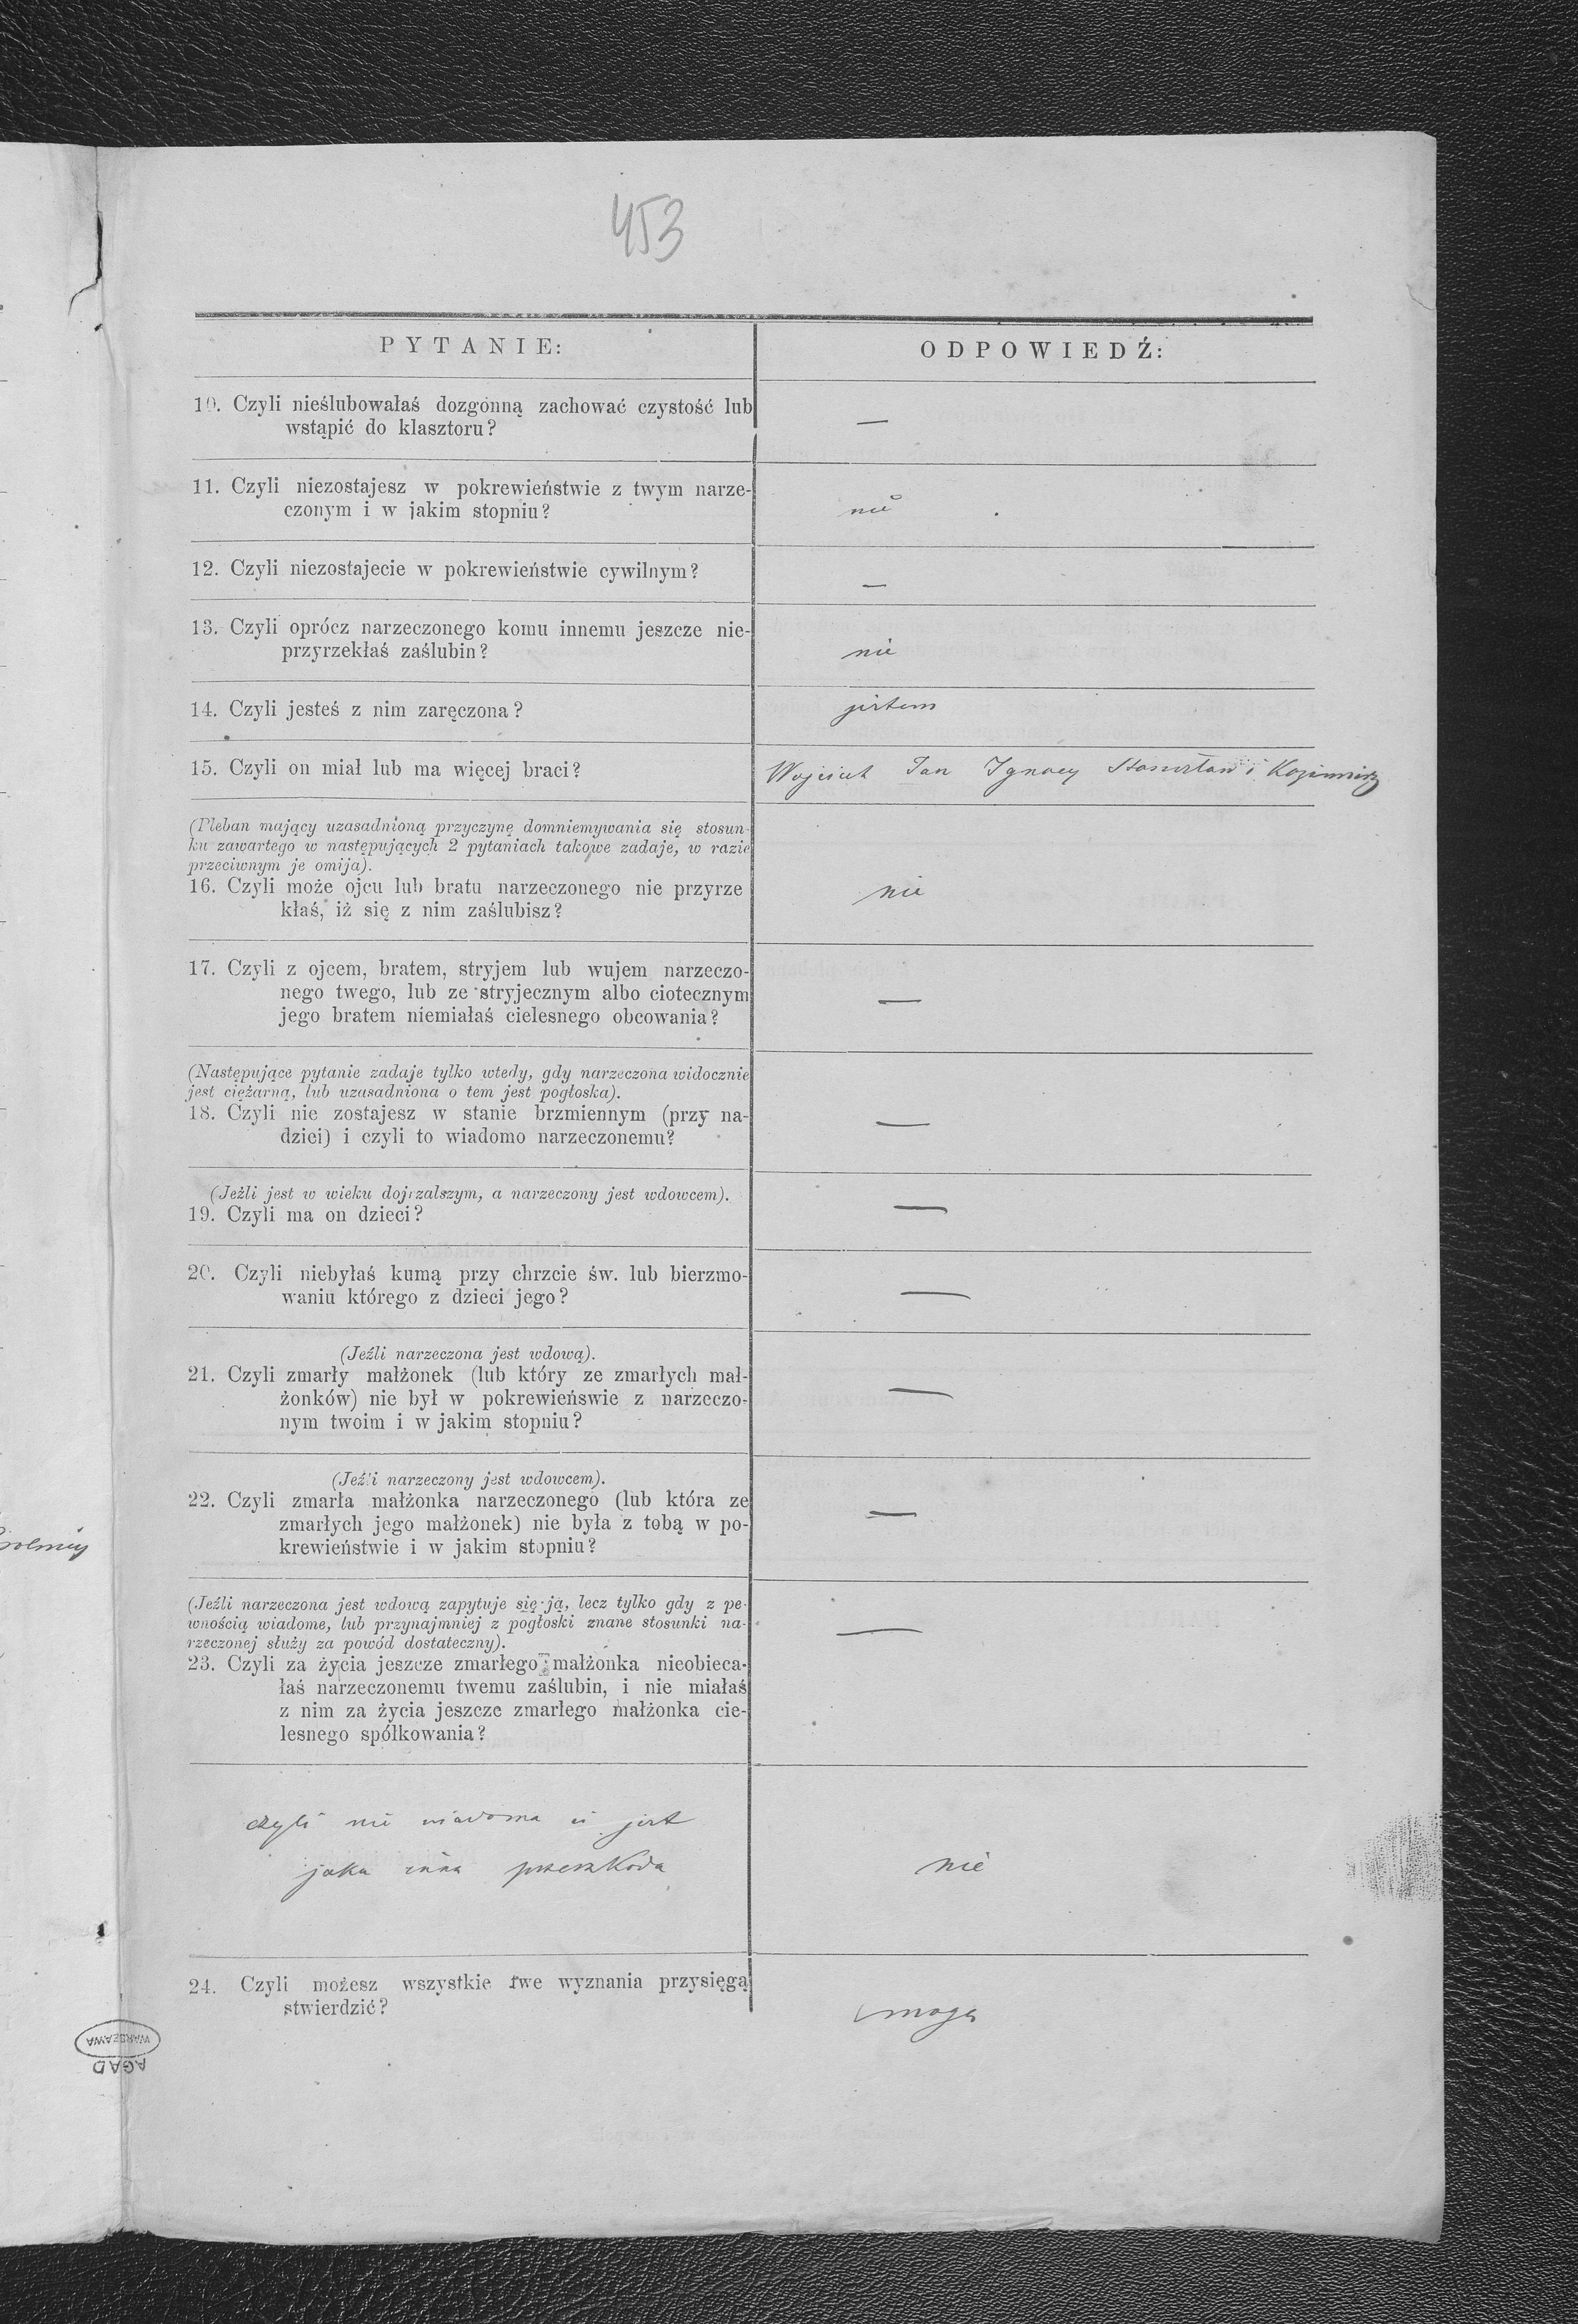 453
PYTANIE:
ODPOWIEDŹ:
10. Czyli nieślubowałaś dozgonną zachować czystość lub
wstąpić do klasztoru?
—
11. Czyli niezostajesz w pokrewieństwie z twym narze-
czonym i w jakim stopniu?
nie
12. Czyli niezostajecie w pokrewieństwie cywilnym?
—
13. Czyli oprócz narzeczonego komu innemu jeszcze nie-
przyrzekłaś zaślubin?
nie
14. Czyli jesteś z nim zaręczona?
jestem
15. Czyli on miał lub ma więcej braci?
Wojciech Jan Ignacy Stanisław i Kazimierz
(Pleban mający uzasadnioną przyczynę domniemywania się stosun-
ku zawartego w następujących 2 pytaniach takowe zadaje, w razie
przeciwnym je omija).
16. Czyli może ojcu lub bratu narzeczonego nie przyrze
kłaś, iż się z nim zaślubisz?
nie
17. Czyli z ojcem, bratem, stryjem lub wujem narzeczo-
nego twego, lub ze stryjecznym albo ciotecznym
jego bratem niemiałaś cielesnego obcowania?
—
(Następujące pytanie zadaje tylko wtedy, gdy narzeczona widocznie
jest ciężarną, lub uzasadniona o tem jest pogłoska).
18. Czyli nie zostajesz w stanie brzmiennym (przy na-
dziei) i czyli to wiadomo narzeczonemu?
—
(Jeżli jest w wieku dojrzalszym, a narzeczony jest wdowcem).
19. Czyli ma on dzieci?
—
20. Czyli niebyłaś kumą przy chrzcie św. lub bierzmo-
waniu którego z dzieci jego?
—
(Jeźli narzeczona jest wdową).
21. Czyli zmarły małżonek (lub który ze zmarłych mał-
żonków) nie był w pokrewieńswie z narzeczo-
nym twoim i w jakim stopniu?
—
(Jeźli narzeczony jest wdowcem).
22. Czyli zmarła małżonka narzeczonego (lub która ze
zmarłych jego małżonek) nie była z tobą w po-
krewieństwie i w jakim stopniu?
—
(Jeźli narzeczona jest wdową zapytuje się ją, lecz tylko gdy z pe-
wnością wiadome, lub przynajmniej z pogłoski znane stosunki na-
rzeczonej służy za powód dostateczny).
23. Czyli za życia jeszcze zmarłego małżonka nieobieca-
łaś narzeczonemu twemu zaślubin, i nie miałaś
z nim za życia jeszcze zmarłego małżonka cie-
lesnego spółkowania?
—
czyli nie wiadoma ci jest
jaka inna przeszkoda
nie
24. Czyli możesz wszystkie twe wyznania przysięgą
stwierdzić?
mogę
WARSZAWA
AGAD